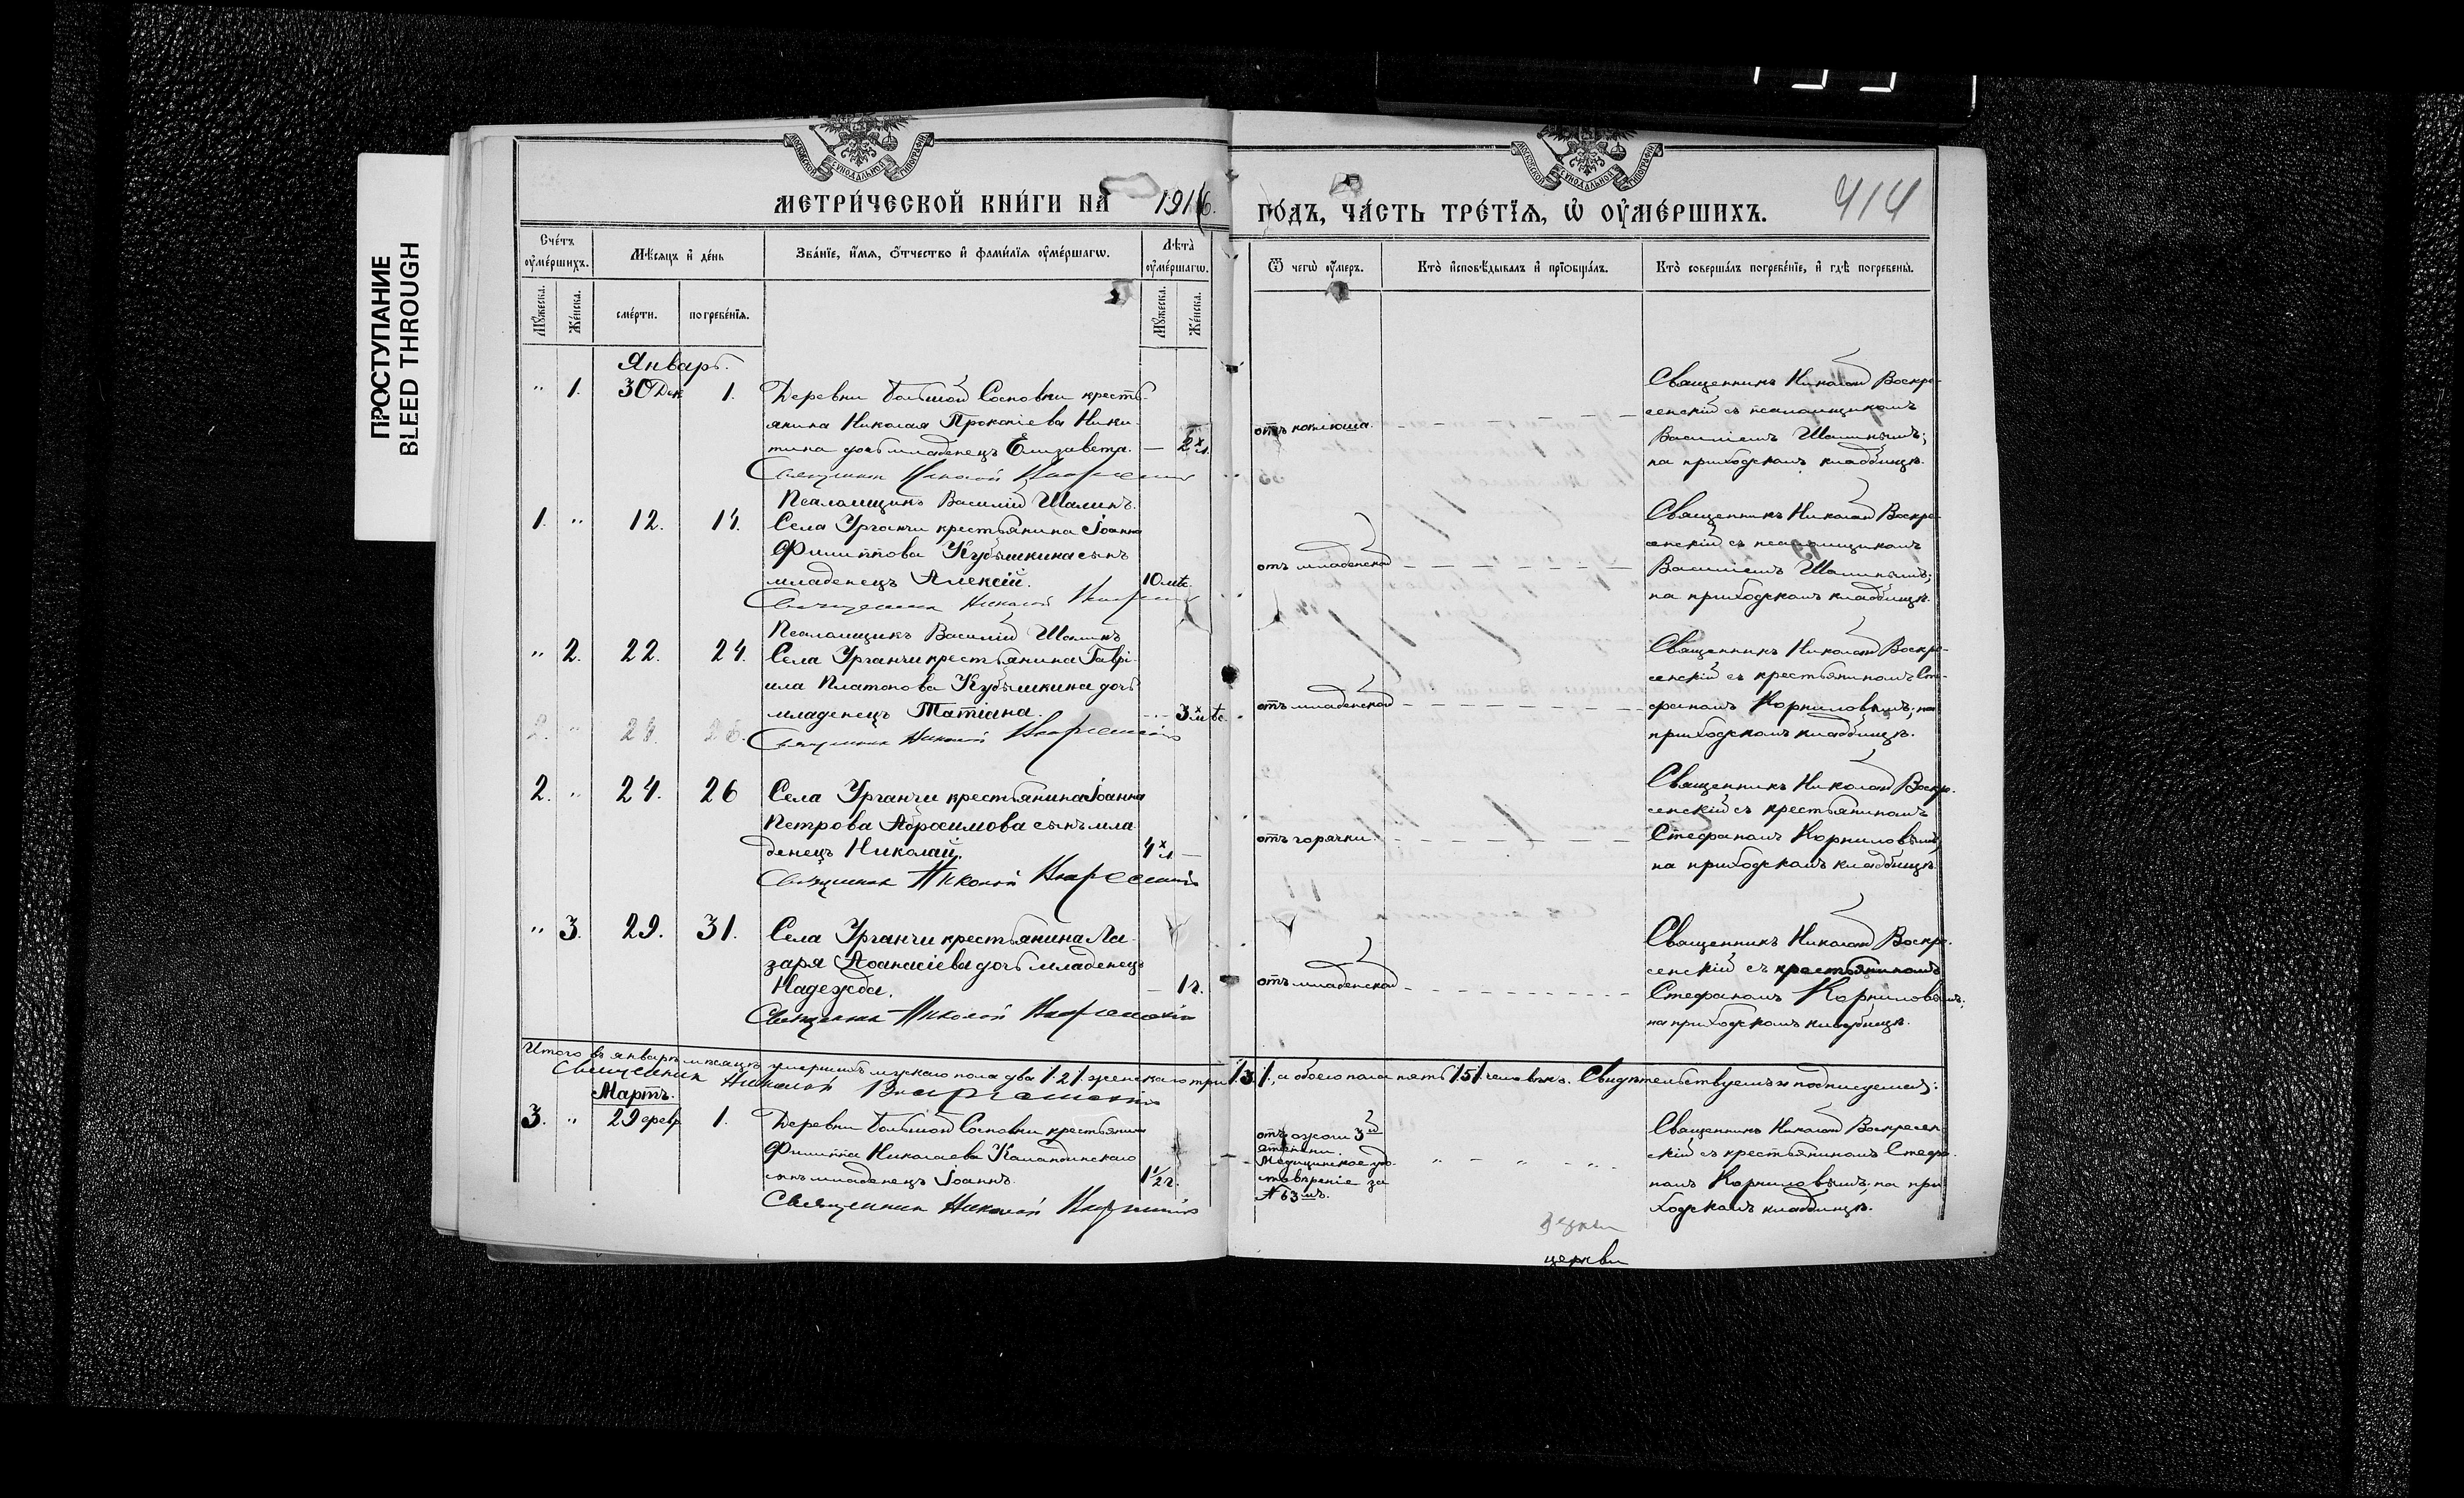 ПРОСТУПАНИЕ
BLEED THROUGH
МОСКОВСКОЙ СУНОДАЛЬНОЙ ТИПОГРАФІИ
МОСКОВСКОЙ СУНОДАЛЬНОЙ ТИПОГРАФІИ
МЕТРИ́ЧЕСКОЙ КНИ́ГИ НА 1916.
ГО́ДЪ, ЧА́СТЬ ТРЕ́ТІѦ, Ѡ ОУМЕ́РШИХЪ.
414
Сче́тъ оуме́ршихъ.
Мѣ́сяцъ и де́нь
Зва́нїе, и́мя, о́тчество и фами́лїя оуме́ршагѡ.
Лѣта̀ оуме́ршагѡ.
Ѿ чегѡ̀ оу́меръ.
Кто̀ и́сповѣ́дывалъ и прїобща́лъ.
Кто̀ соверша́лъ погребе́нїе, и гдѣ̀ погребены̀.
Мꙋ́жеска.
Же́нска.
сме́рти.
погребе́нїя.
Мꙋ́жеска.
Же́нска.
Январь.
" 1. 30 Дек. 1. Деревни Большой Сосновки кресть-
янина Николая Прокопіева Ники-
тина дочь младенецъ Елизавета. — 2 х л.
Священникъ Николай Воскресенскій
Псаломщикъ Василій Шалинъ.
отъ коклюша.
Священникъ Николай Воскре-
сенскій съ псаломщикомъ
Василіемъ Шалинымъ;
на приходскомъ кладбищѣ.
1. " 12. 14. Села Урганчи крестьянина Іоанна
Филиппова Кубышкина сынъ
младенецъ Алексій. 10 мѣс.
Священникъ Николай Воскресенскій
Псаломщикъ Василій Шалинъ
отъ младенской
Священникъ Николай Воскре-
сенскій съ псаломщикомъ
Василіемъ Шалинымъ;
на приходскомъ кладбищѣ.
" 2. 22. 24. Села Урганчи крестьянина Гаврі-
ила Платонова Кубышкина дочь
младенецъ Татіана. 3 х мѣс.
2. " 24. 26. Священникъ Николай Воскресенскій
отъ младенской
Священникъ Николай Воскре-
сенскій съ крестьяниномъ Сте-
фаномъ Корниловымъ; на
приходскомъ кладбищѣ.
2. " 24. 26 Села Урганчи крестьянина Іоанна
Петрова Абросимова сынъ мла-
денецъ Николай. 4 х л. —
Священникъ Николай Воскресенскій
отъ горячки
Священникъ Николай Воскре-
сенскій съ крестьяниномъ
Стефаномъ Корниловымъ,
на приходскомъ кладбищѣ
" 3. 29. 31. Села Урганчи крестьянина Ла-
заря Аѳанасіева дочь младенецъ
Надежда. — 1 г.
Священникъ Николай Воскресенскій
отъ младенской
Священникъ Николай Воскре-
сенскій съ крестьяниномъ
Стефаномъ Корниловымъ;
на приходскомъ кладбищѣ.
Итого въ январѣ мѣсяцѣ умершихъ мужскаго пола два /2/ женскаго три /3/, а обоего пола пять /5/ человѣкъ. Свидѣтельствуемъ и подписуемся:
Священникъ Николай Воскресенскій
Мартъ.
3. " 29 февр. 1. Деревни Большой Сосновки крестьянина
Филиппа Николаева Каландинскаго
сынъ младенецъ Іоаннъ. 1 1/2 г.
Священникъ Николай Воскресенскій
отъ ожоги 3й
степени.
Медицинское удо-
стовѣреніе за
№ 63 мъ.
Священникъ Николай Воскресен-
скій съ крестьяниномъ Стефа-
номъ Корниловымъ; на при-
ходскомъ кладбищѣ.
церкви